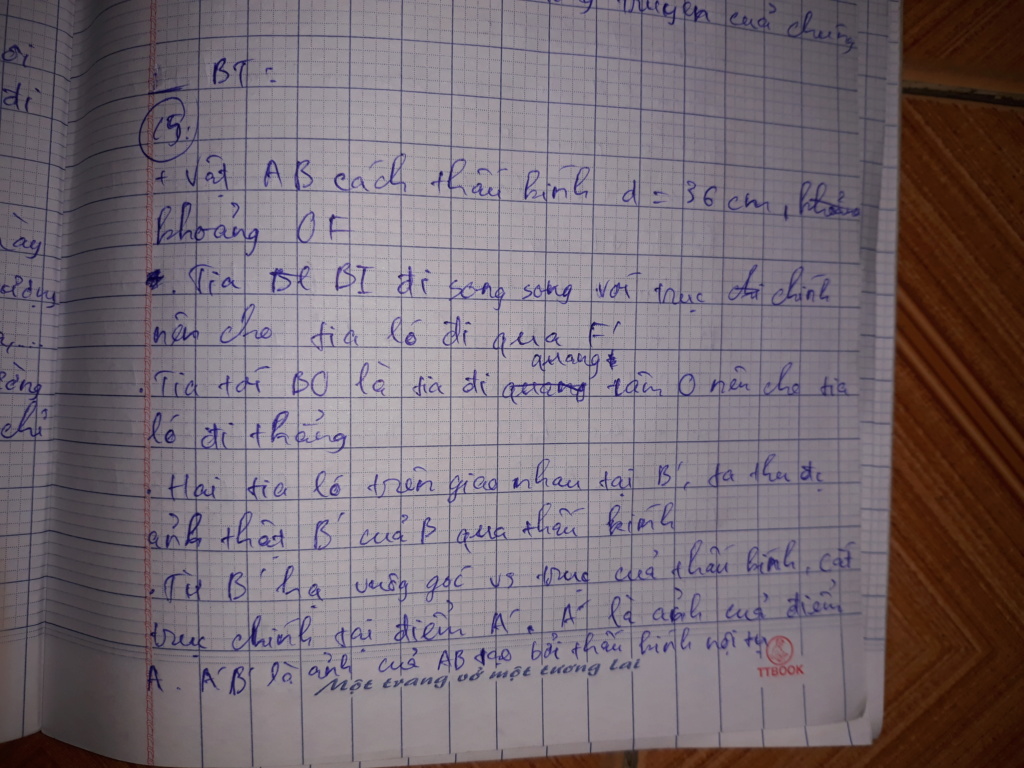 truyện của chúng
ới
đi
ày
ường
chỉ
BT :
C5.
+ Vật AB cách thấu kính d = 36 cm,
khoảng OF
. Tia BI đi song song với trục chính
nên cho tia ló đi qua F'
quang
. Tia tới BO là tia đi quang tâm O nên cho tia
ló đi thẳng
. Hai tia ló trên giao nhau tại B', ta thu đc
ảnh thật B' của B qua thấu kính
. Từ B' hạ vuông góc vs trục của thấu kính, cắt
trục chính tại điểm A'. A' là ảnh của điểm
A. A'B' là ảnh của AB tạo bởi thấu kính hội tụ
Một trang vở một tương lai
TTBOOK